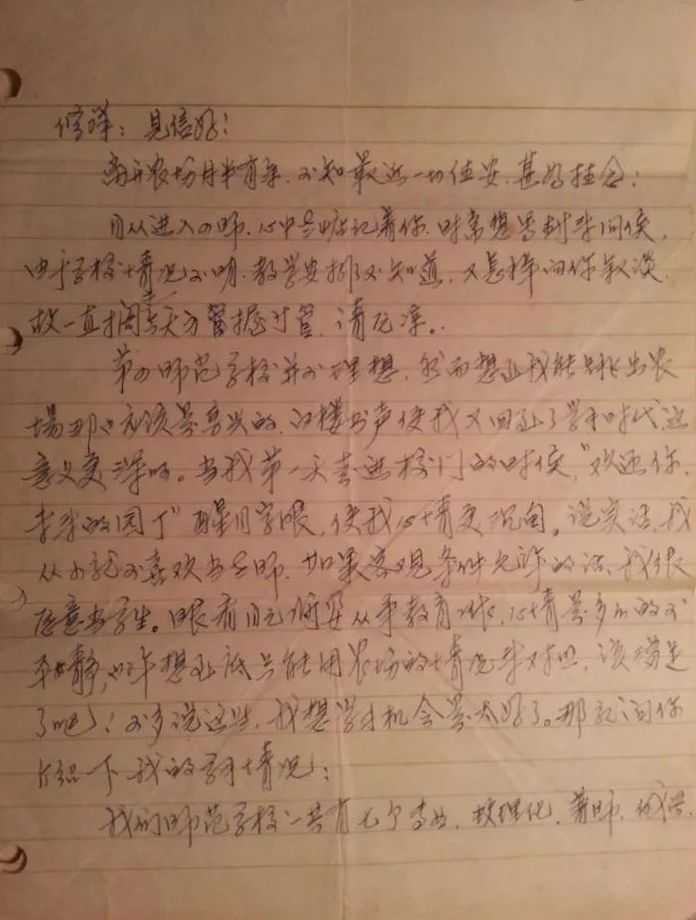 修祥：见信好！
离开农场月半有余，不知最近一切佳安，甚为挂念！
自从进入四师，心中无时不记着你，时常想写封来问候，
由于学校情况不明，教学安排又不知道，又怎样向你叙谈，
故一直搁，请允谅。
第四师范学校并不理想，然而想让我能跳出农
场那也应该是高兴的，读书声使我又回到了学生时代，这
意义更深呀。当我第一天走进校门的时候，"欢迎你，
未来的园丁"醒目字眼，使我心情更沉甸。说实话，我
从小就不喜欢当老师，如果客观条件允许的话，我很
愿意当学生。眼看自己将要从事教育工作，心情是多么的不
平静，想到底只能用农场的情况来对照，该满足
了吧！不多说这些，我想学习机会是太好了。那就向你
介绍一下我的学习情况：
我们师范学校一共有七个专业，数理化、